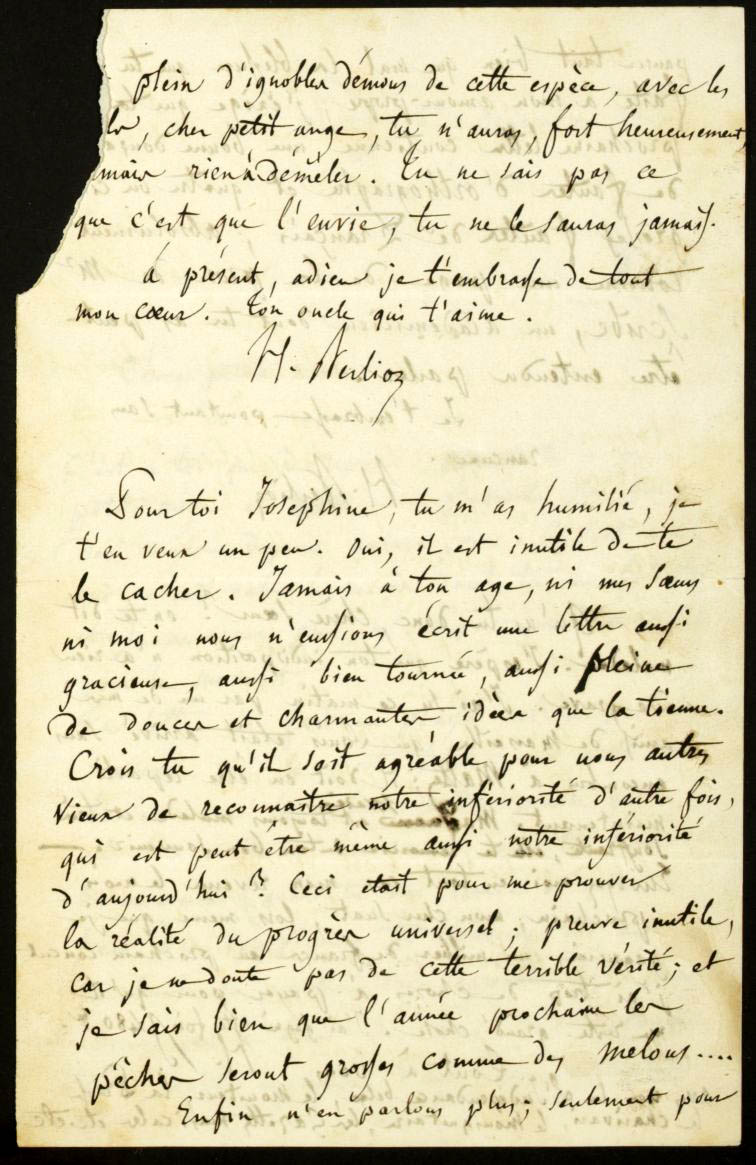 plein d'ignobles démons de cette espèce, avec les
cher petit ange, tu n'auras, fort heureusement,
rien à démêler. Tu ne sais pas ce
que c'est que l'envie, tu ne le sauras jamais.
à présent, adieu je t'embrasse de tout
mon cœur. Ton oncle qui t'aime.
H. Berlioz
Pour toi Josephine, tu m'as humilié, je
t'en veux un peu. Oui, il est inutile de te
le cacher. Jamais à ton age, ni mes sœurs
ni moi nous n'eussions écrit une lettre aussi
gracieuse, aussi bien tournée, aussi pleine
de douces et charmantes idées que la tienne.
Crois tu qu'il soit agréable pour nous autres
vieux de reconnaitre notre infériorité d'autre fois,
qui est peut être même aussi notre infériorité
d'aujourd'hui ? Ceci etait pour me prouver
la réalité du progrès universel ; preuve inutile,
car je ne doute pas de cette terrible vérité ; et
je sais bien que l'année prochaine les
pêches seront grosses comme des melons....
Enfin n'en parlons plus ; seulement pour